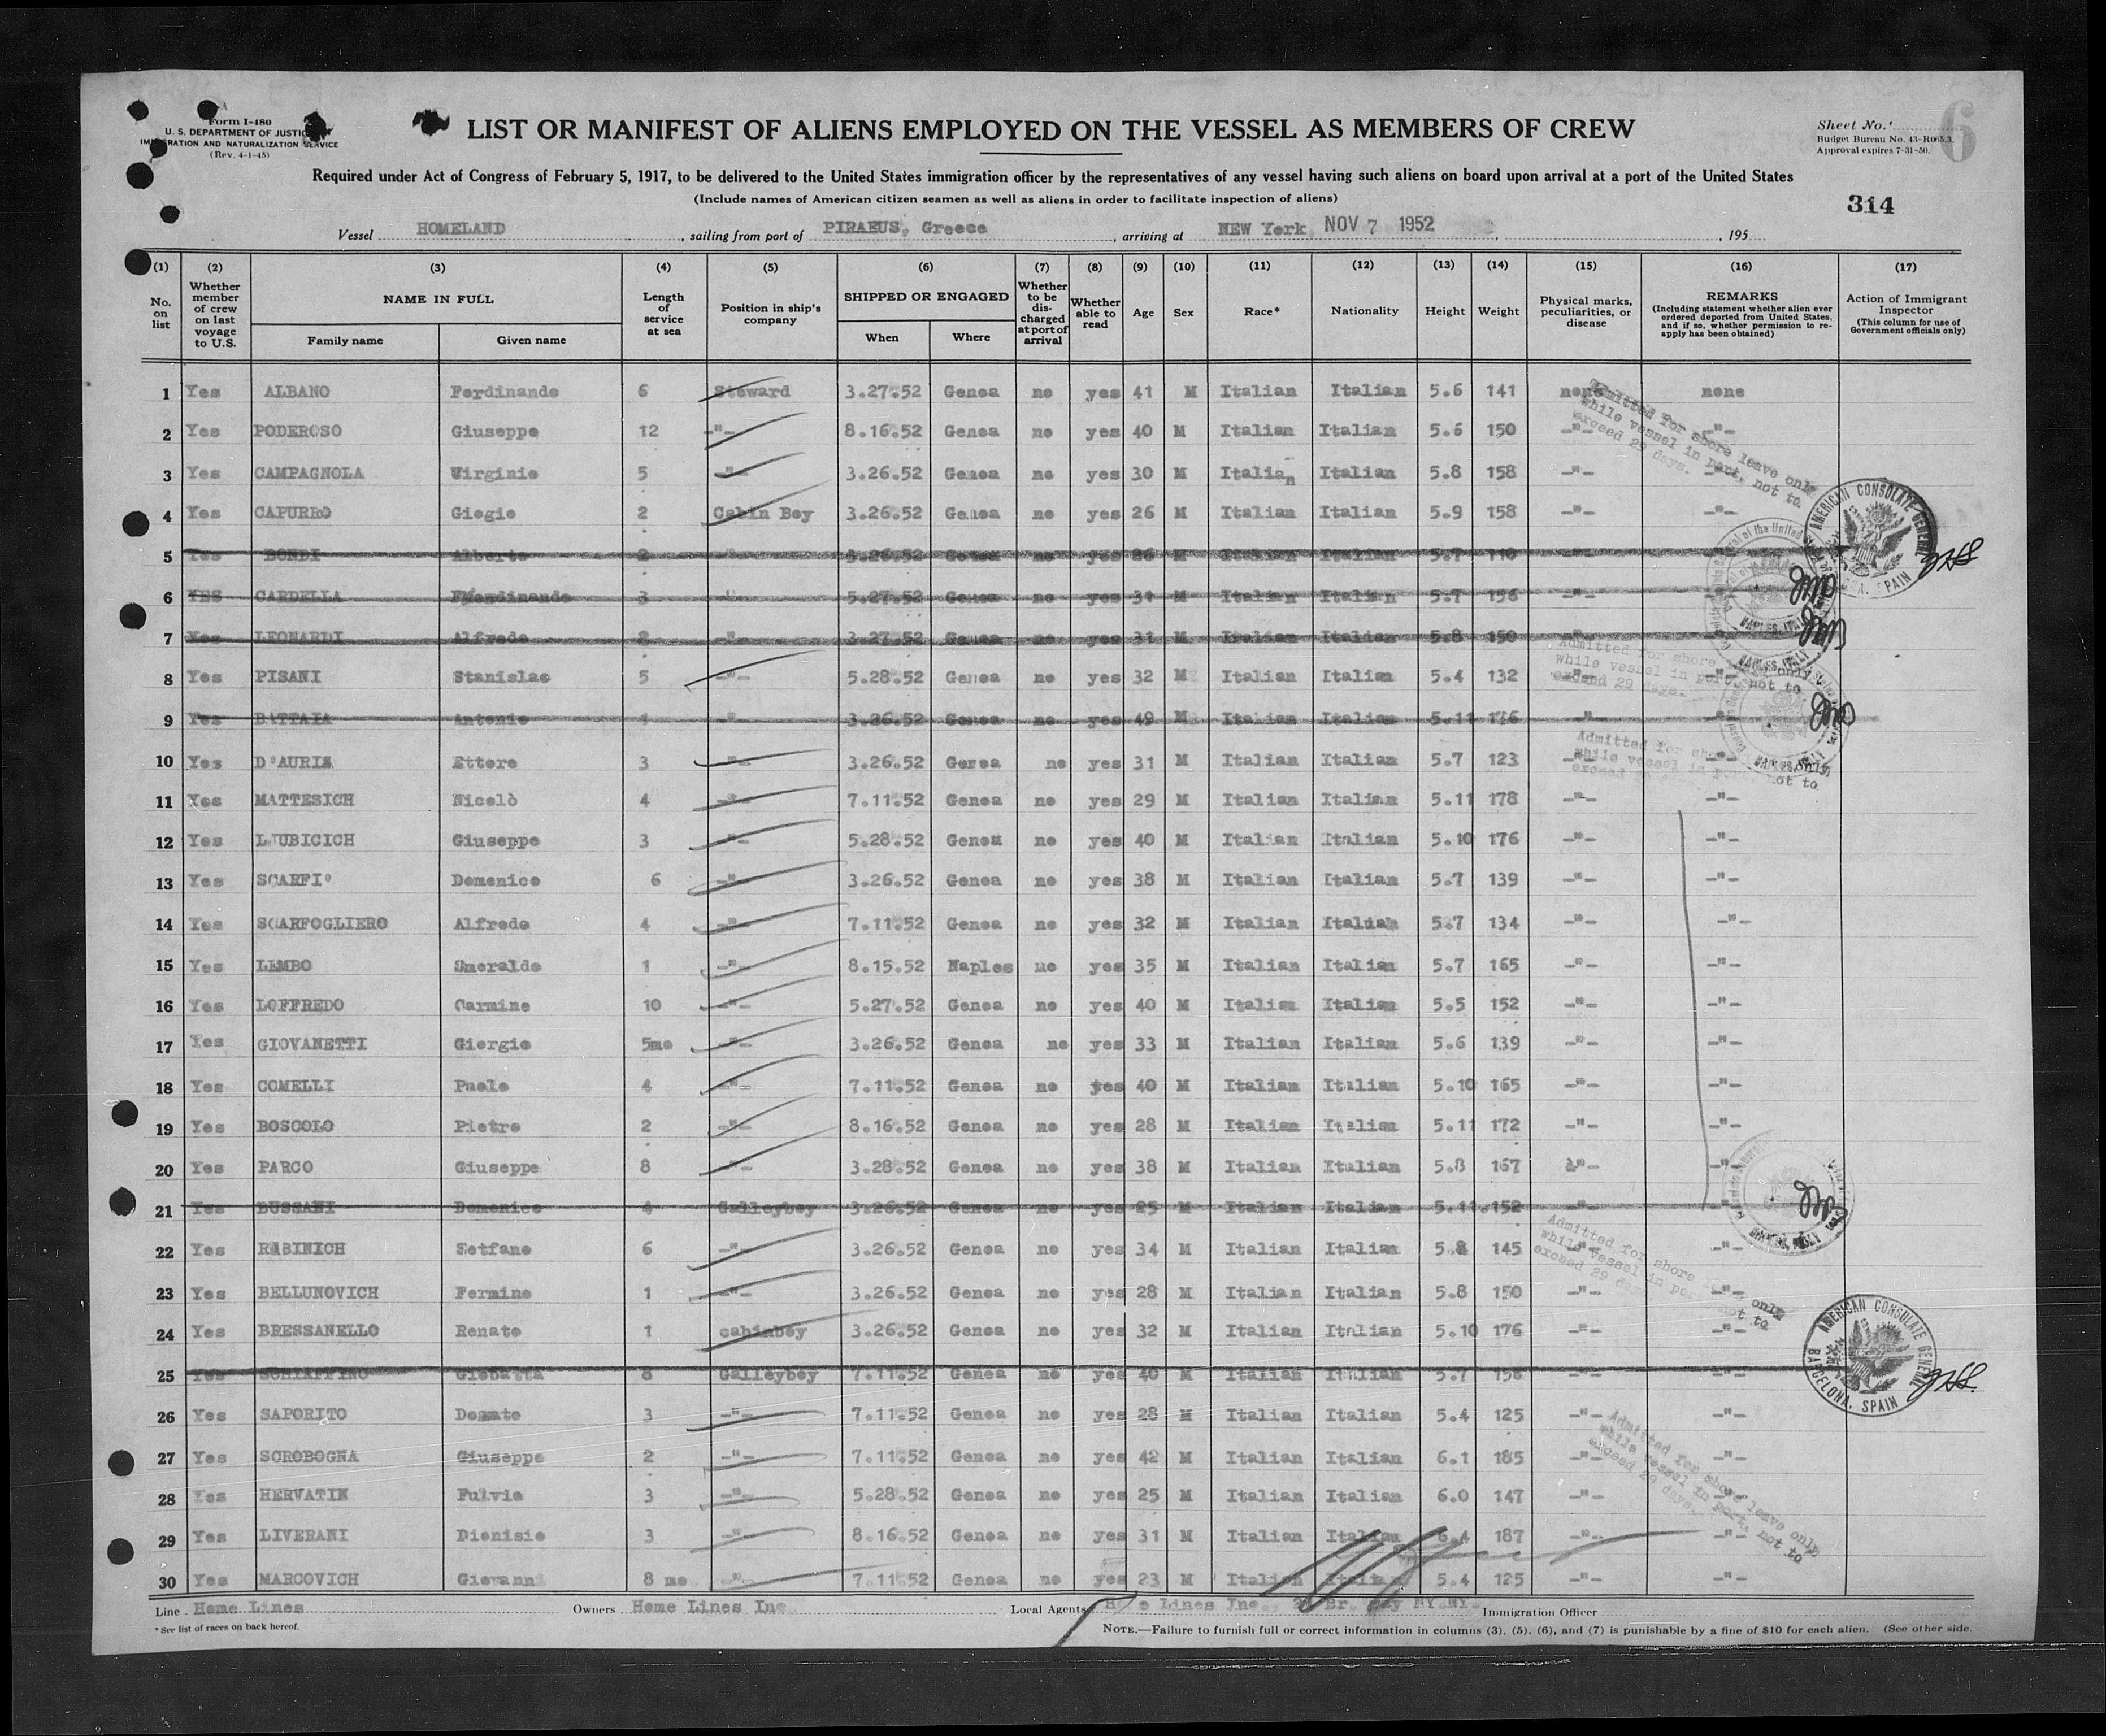 Form I-480
U. S. DEPARTMENT OF JUSTICE
IMMIGRATION AND NATURALIZATION SERVICE
(Rev. 4-1-45)
LIST OR MANIFEST OF ALIENS EMPLOYED ON THE VESSEL AS MEMBERS OF CREW
Sheet No. 6
Budget Bureau No. 43-R065.3.
Approval expires 7-31-50.
Required under Act of Congress of February 5, 1917, to be delivered to the United States immigration officer by the representatives of any vessel having such aliens on board upon arrival at a port of the United States
(Include names of American citizen seamen as well as aliens in order to facilitate inspection of aliens)
314
Vessel HOMELAND , sailing from port of PIRAEUS, Greece , arriving at NEW York NOV 7 1952 , 195
(1) (2) (3) (4) (5) (6) (7) (8) (9) (10) (11) (12) (13) (14) (15) (16) (17)
No. on list
Whether member of crew on last voyage to U.S.
NAME IN FULL
Family name
Given name
Length of service at sea
Position in ship's company
SHIPPED OR ENGAGED
When
Where
Whether to be discharged at port of arrival
Whether able to read
Age
Sex
Race*
Nationality
Height
Weight
Physical marks, peculiarities, or disease
REMARKS
(Including statement whether alien ever ordered deported from United States, and if so, whether permission to reapply has been obtained)
Action of Immigrant Inspector
(This column for use of Government officials only)
1 Yes ALBANO Ferdinando 6 Steward 3.27.52 Genoa no yes 41 M Italian Italian 5.6 141 none none
2 Yes PODEROSO Giuseppe 12 -"- 8.16.52 Genoa no yes 40 M Italian Italian 5.6 150 -"- -"-
3 Yes CAMPAGNOLA Virginio 5 -"- 3.26.52 Genoa no yes 30 M Italian Italian 5.8 158 -"- -"-
4 Yes CAPURRO Giogio 2 Cabin Boy 3.26.52 Genoa no yes 26 M Italian Italian 5.9 158 -"- -"-
5 Yes BONDI Alberto 2 -"- 3.26.52 Genoa no yes 26 M Italian Italian 5.7 110
6 YES CARDELLA Ferdinando 3 -"- 5.27.52 Genoa no yes 31 M Italian Italian 5.7 156 -"-
7 Yes LEONARDI Alfredo 8 -"- 3.27.52 Genoa no yes 31 M Italian Italian 5.8 150 -"- -"-
8 Yes PISANI Stanislao 5 -"- 5.28.52 Genoa no yes 32 M Italian Italian 5.4 132 -"- -"-
9 Yes BATTAIA Antonio 4 -"- 3.26.52 Genoa no yes 49 M Italian Italian 5.11 176 -"- -"-
10 Yes D'AURIA Ettore 3 -"- 3.26.52 Genoa no yes 31 M Italian Italian 5.7 123 -"- -"-
11 Yes MATTESICH Nicolò 4 -"- 7.11.52 Genoa no yes 29 M Italian Italian 5.11 178 -"- -"-
12 Yes LJUBICICH Giuseppe 3 -"- 5.28.52 Genoa no yes 40 M Italian Italian 5.10 176 -"- -"-
13 Yes SCARFI' Domenico 6 -"- 3.26.52 Genoa no yes 38 M Italian Italian 5.7 139 -"- -"-
14 Yes SCARFOGLIERO Alfredo 4 -"- 7.11.52 Genoa no yes 32 M Italian Italian 5.7 134 -"- -"-
15 Yes LEMBO Smeraldo 1 -"- 8.15.52 Naples no yes 35 M Italian Italian 5.7 165 -"- -"-
16 Yes LOFFREDO Carmine 10 -"- 5.27.52 Genoa no yes 40 M Italian Italian 5.5 152 -"- -"-
17 Yes GIOVANETTI Giorgio 5mo -"- 3.26.52 Genoa no yes 33 M Italian Italian 5.6 139 -"- -"-
18 Yes COMELLI Paolo 4 -"- 7.11.52 Genoa no yes 40 M Italian Italian 5.10 165 -"- -"-
19 Yes BOSCOLO Pietro 2 -"- 8.16.52 Genoa no yes 28 M Italian Italian 5.11 172 -"- -"-
20 Yes PARCO Giuseppe 8 -"- 3.28.52 Genoa no yes 38 M Italian Italian 5.8 167 -"- -"-
21 Yes BUSSANI Domenico 4 Galleyboy 3.26.52 Genoa no yes 25 M Italian Italian 5.11 152 -"- -"-
22 Yes RABINICH Setfano 6 -"- 3.26.52 Genoa no yes 34 M Italian Italian 5.8 145 -"- -"-
23 Yes BELLUNOVICH Fermino 1 -"- 3.26.52 Genoa no yes 28 M Italian Italian 5.8 150 -"- -"-
24 Yes BRESSANELLO Renato 1 cabinboy 3.26.52 Genoa no yes 32 M Italian Italian 5.10 176 -"- -"-
25 Yes SCHIAFFINO Giobatta 8 Galleyboy 7.11.52 Genoa no yes 40 M Italian Italian 5.7 158 -"- -"-
26 Yes SAPORITO Donato 3 -"- 7.11.52 Genoa no yes 28 M Italian Italian 5.4 125 -"- -"-
27 Yes SCROBOGNA Giuseppe 2 -"- 7.11.52 Genoa no yes 42 M Italian Italian 6.1 185 -"- -"-
28 Yes HERVATIN Fulvio 3 -"- 5.28.52 Genoa no yes 25 M Italian Italian 6.0 147 -"- -"-
29 Yes LIVERANI Dionisio 3 -"- 8.16.52 Genoa no yes 31 M Italian Italian 6.4 187 -"- -"-
30 Yes MARCOVICH Giovann 8 mo -"- 7.11.52 Genoa no yes 23 M Italian Italian 5.4 125 -"- -"-
Admitted for shore leave only
while vessel in port, not to
exceed 29 days.
AMERICAN CONSULATE GENERAL
BARCELONA, SPAIN
NAPLES, ITALY
Admitted for shore leave only
while vessel in port, not to
exceed 29 days.
Admitted for shore leave only
while vessel in port, not to
Admitted for shore only
while vessel in port, not to
exceed 29 days
NAPLES, ITALY
AMERICAN CONSULATE GENERAL
BARCELONA, SPAIN
Admitted for shore leave only
while vessel in port, not to
exceed 29 days.
Line Home Lines Owners Home Lines Inc. Local Agents Home Lines Inc., Immigration Officer
* See list of races on back hereof.
NOTE.—Failure to furnish full or correct information in columns (3), (5), (6), and (7) is punishable by a fine of $10 for each alien. (See other side.